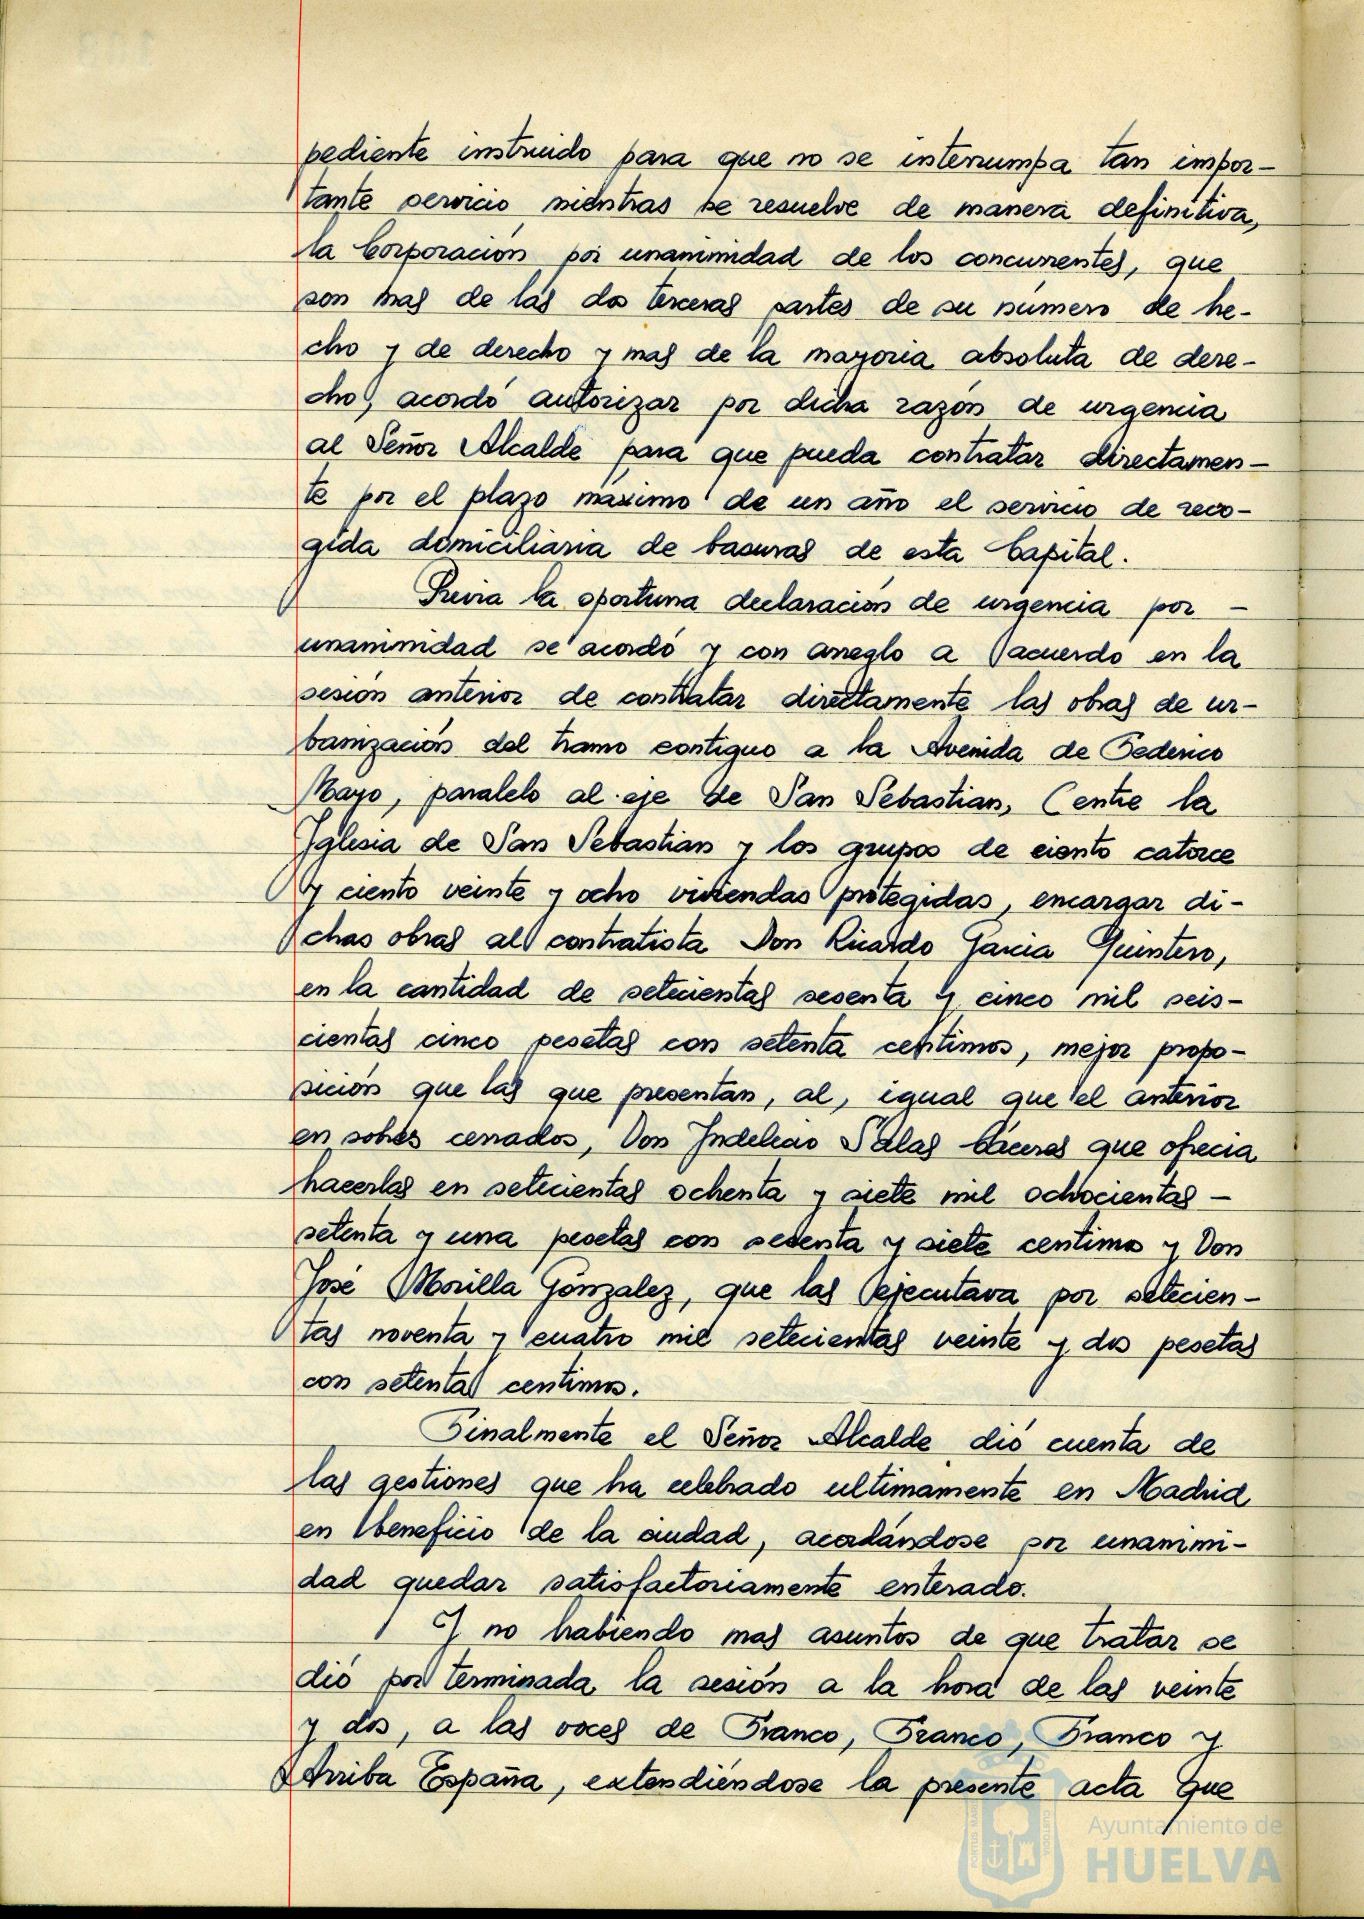 pediente instruido para que no se interrumpa tan impor-
tante servicio mientras se resuelve de manera definitiva,
la Corporación por unanimidad de los concurrentes, que
son mas de las dos terceras partes de su número de he-
cho y de derecho y mas de la mayoria absoluta de dere-
cho, acordó autorizar por dicha razón de urgencia
al Señor Alcalde para que pueda contratar directamen-
te por el plazo máximo de un año el servicio de reco-
gida domiciliaria de basuras de esta Capital.
Previa la oportuna declaración de urgencia por -
unanimidad se acordó y con arreglo a acuerdo en la
sesión anterior de contratar directamente las obras de ur-
banización del tramo contiguo a la Avenida de Federico
Mayo, paralelo al eje de San Sebastian, (entre la
Iglesia de San Sebastian y los grupos de ciento catorce
y ciento veinte y ocho viviendas protegidas, encargar di-
chas obras al contratista Don Ricardo Garcia Quintero,
en la cantidad de setecientas sesenta y cinco mil seis-
cientas cinco pesetas con setenta centimos, mejor propo-
sición que las que presentan, al, igual que el anterior
en sobres cerrados, Don Indelecio Salas Cáceres que ofrecia
hacerlas en setecientas ochenta y siete mil ochocientas -
setenta y una pesetas con sesenta y siete centimos y Don
José Morilla Gónzalez, que las ejecutava por setecien-
tas noventa y cuatro mil setecientas veinte y dos pesetas
con setenta centimos.
Finalmente el Señor Alcalde dió cuenta de
las gestiones que ha celebrado ultimamente en Madrid
en beneficio de la ciudad, acordándose por unanimi-
dad quedar satisfactoriamente enterado.
Y no habiendo mas asuntos de que tratar se
dió por terminada la sesión a la hora de las veinte
y dos, a las voces de Franco, Franco, Franco y
Arriba España, extendiéndose la presente acta que
PORTUS MARIS CUSTODIA
Ayuntamiento de
HUELVA